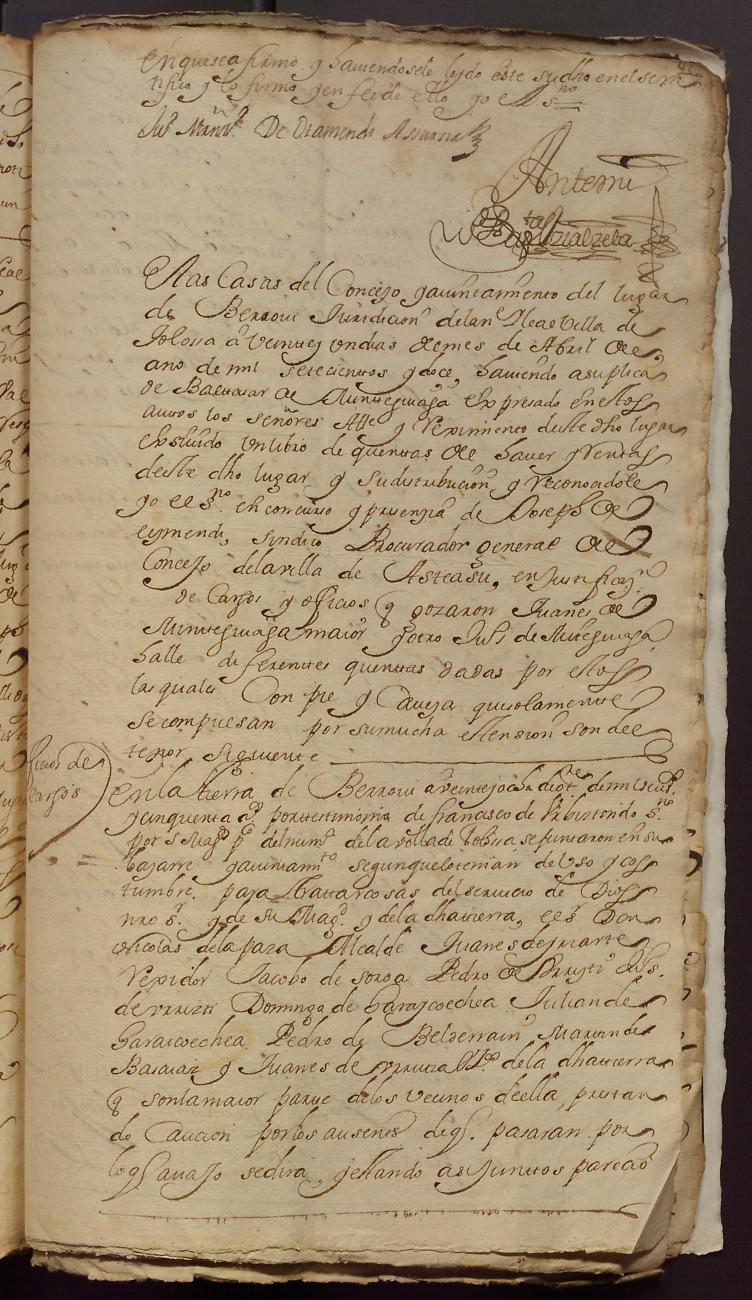 en que se afirmo y haviendosele leydo este su dho en el se ra
tifico y lo firmo y en fee de ello yo el s.no
De Otamendi
Antemi
En las Casas del Concejo y aiuntamiento del lugar
de Berrovi Juridicion de la n. Leal Villa de
Tolossa a veinte y un dias del mes de Abril del
ano de mil setecientos y doce, haviendo a suplica
de Baltasar de Minteguiaga expresado en estos
autos los señores Alle y Reximiento deste dho lugar
exsivido un libro de quentas del haver y Rentas
deste dho lugar y su distribucion y reconocidole
yo el s.no en concurso y presenzia de Joseph de
eymendi, sindico Procurador general del
Concejo de la villa de Asteasu, en Justificaz.n
de Cargos y oficios q gozaron Juanes de
Minteguiaga maior y otro Ju.s de Minteguiaga,
halle diferentes quentas dadas por estos
las quales Con pie y Caveza que solamente
se compulsan por su mucha estension son del
tenor siguiente
ficios de
Cargos
En la tierra de Berrovi a veinte y ocho de
y cinquenta a.s por testimonio de francisco de Urbiztondo s.no
por su Mag.d p.co del num.o de la villa de Tolosa, se juntaron en su
bazarre y aiuntam.to segun que lo tenian de Uso y cos
tumbre, para tratar cosas del servicio de Dios
nro s.r y de su Mag.d y de la dha tierra, el s.r Don
nicolas de la plaza Alcalde Juanes de yriarte
Rexidor Jacobo de soroa Pedro de
de Domingo de Garaicoechea Julian de
Garaicoechea Pedro de Belderrain Martin de
y Juanes de Urrutia de la dha tierra
q son la maior parte de los vecinos de ella, prestan
do Caucion por los ausentes de q. pasaran por
lo q avajo se dira, y estando asi Juntos parecio